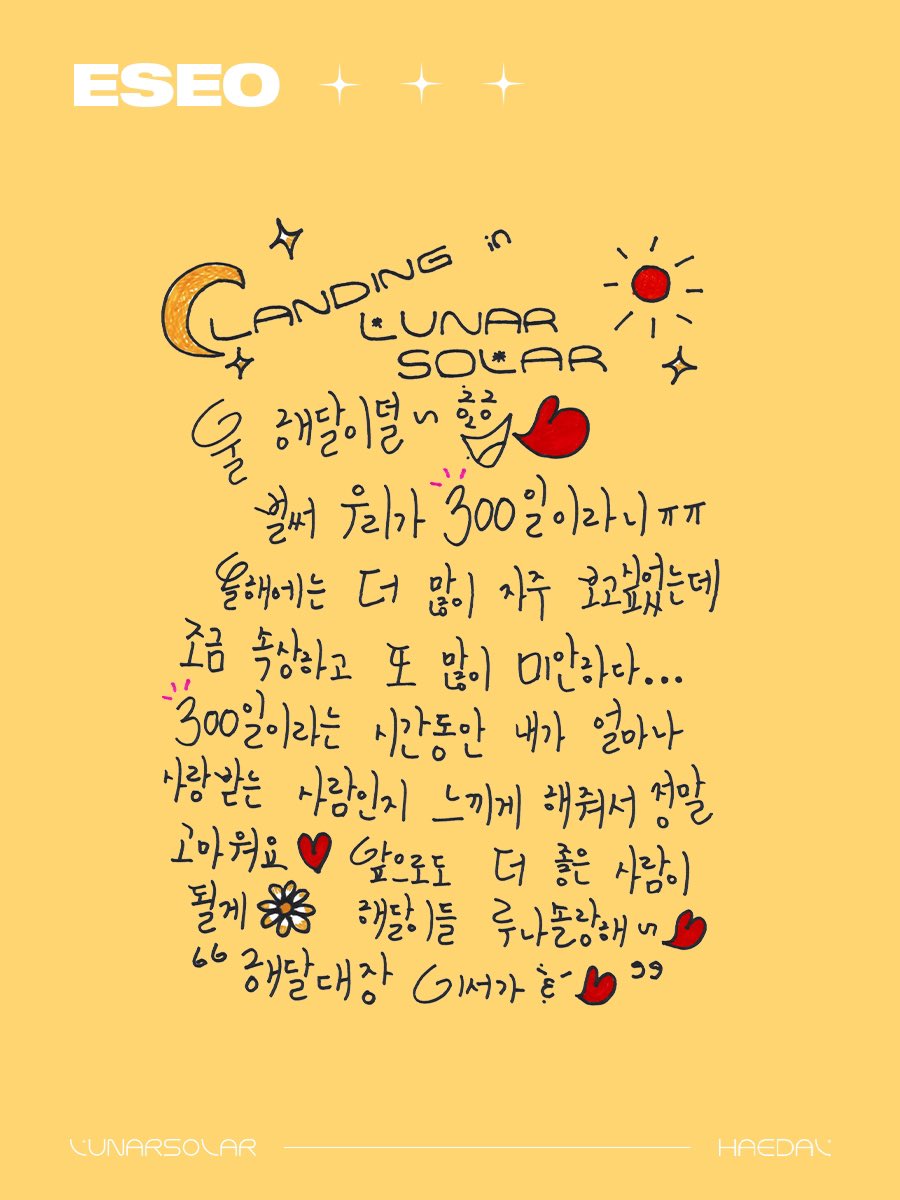 ESEO
LANDING in
LUNAR
SOLAR
울 해달이덜~
벌써 우리가 300일이라니ㅠㅠ
올해에는 더 많이 자주 보고싶었는데
조금 속상하고 또 많이 미안하다...
300일이라는 시간동안 내가 얼마나
사랑받는 사람인지 느끼게 해줘서 정말
고마워요♥ 앞으로도 더 좋은 사람이
될게 해달이들 루나솔랑해~
“해달대장 이서가”
LUNARSOLAR HAEDAL